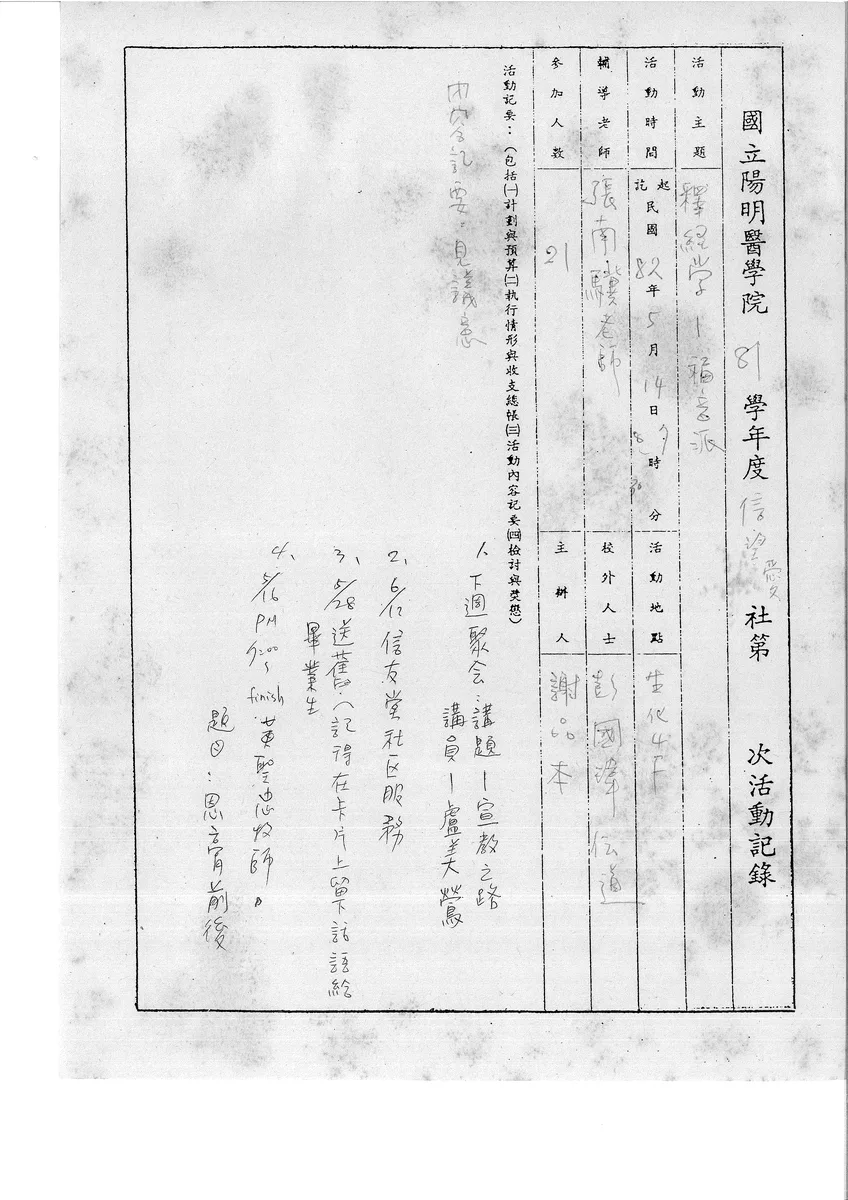 國立陽明醫學院 81 學年度 信望愛 社第 次活動記錄
活動主題 釋經學—福音派
活動時間 起訖 民國 82 年 5 月 14 日 時 分
活動地點 生化4F
輔導老師 張南驥老師
校外人士 彭國瑋 伝道
參加人數 21
主辦人 謝品本
活動記要：（包括㈠計劃與預算㈡執行情形與收支總帳㈢活動內容記要㈣檢討與獎懲）
內容記要：見講義
1、下週聚会：講題—宣教之路
講員—盧美鶯
2、6/12 信友堂社区服務
3、5/28 送舊（記得在卡片上留下話語給
畢業生
4、5/16 PM 7:00~finish 黃聖志牧師
題目：恩膏前後